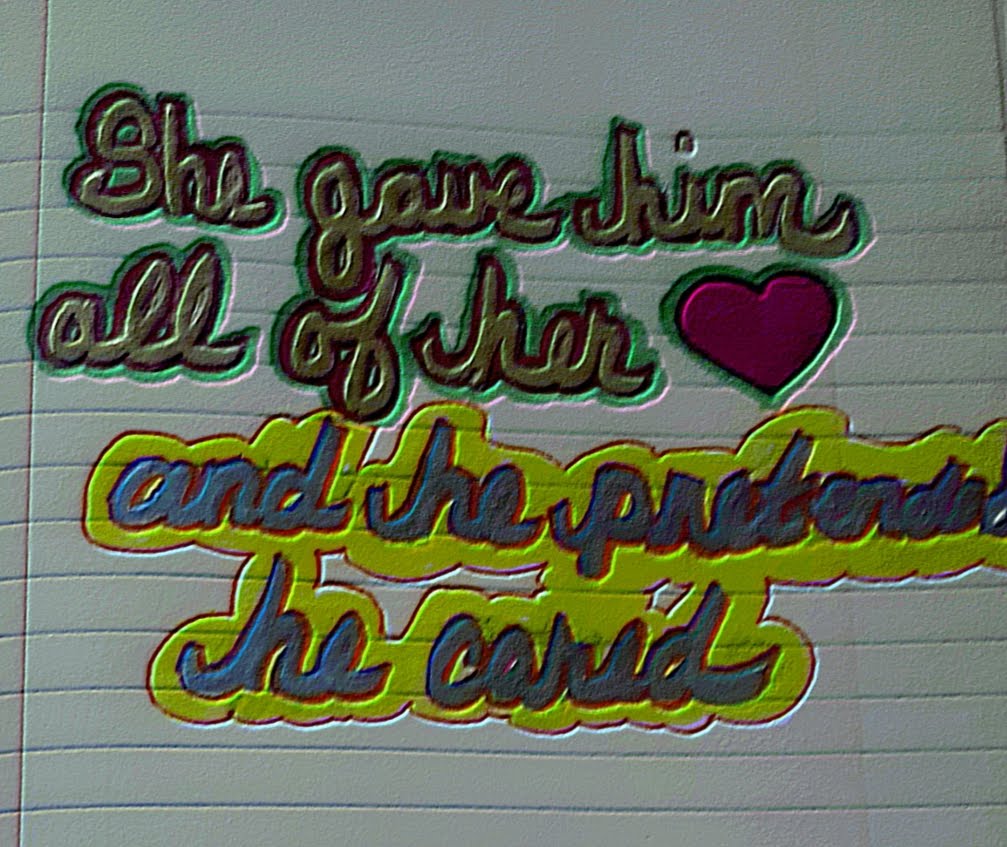 She gave him
all of her ❤
and he pretended
he cared